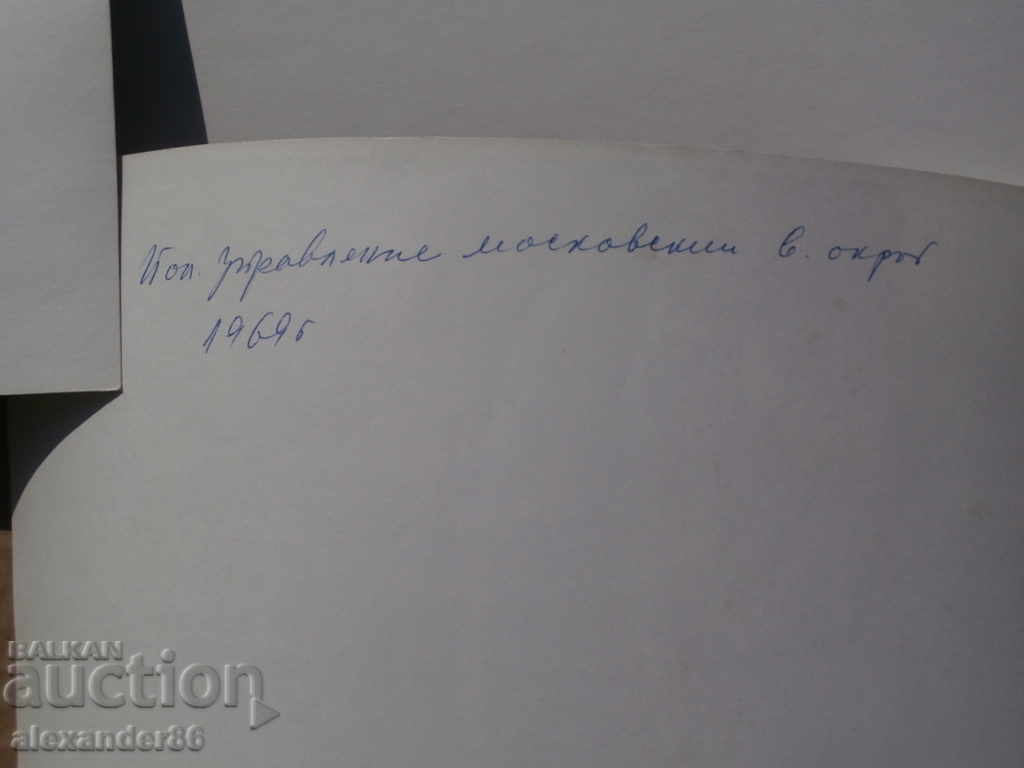 Пол. управление московский в. округ
1969г
BALKAN
auction
alexander86